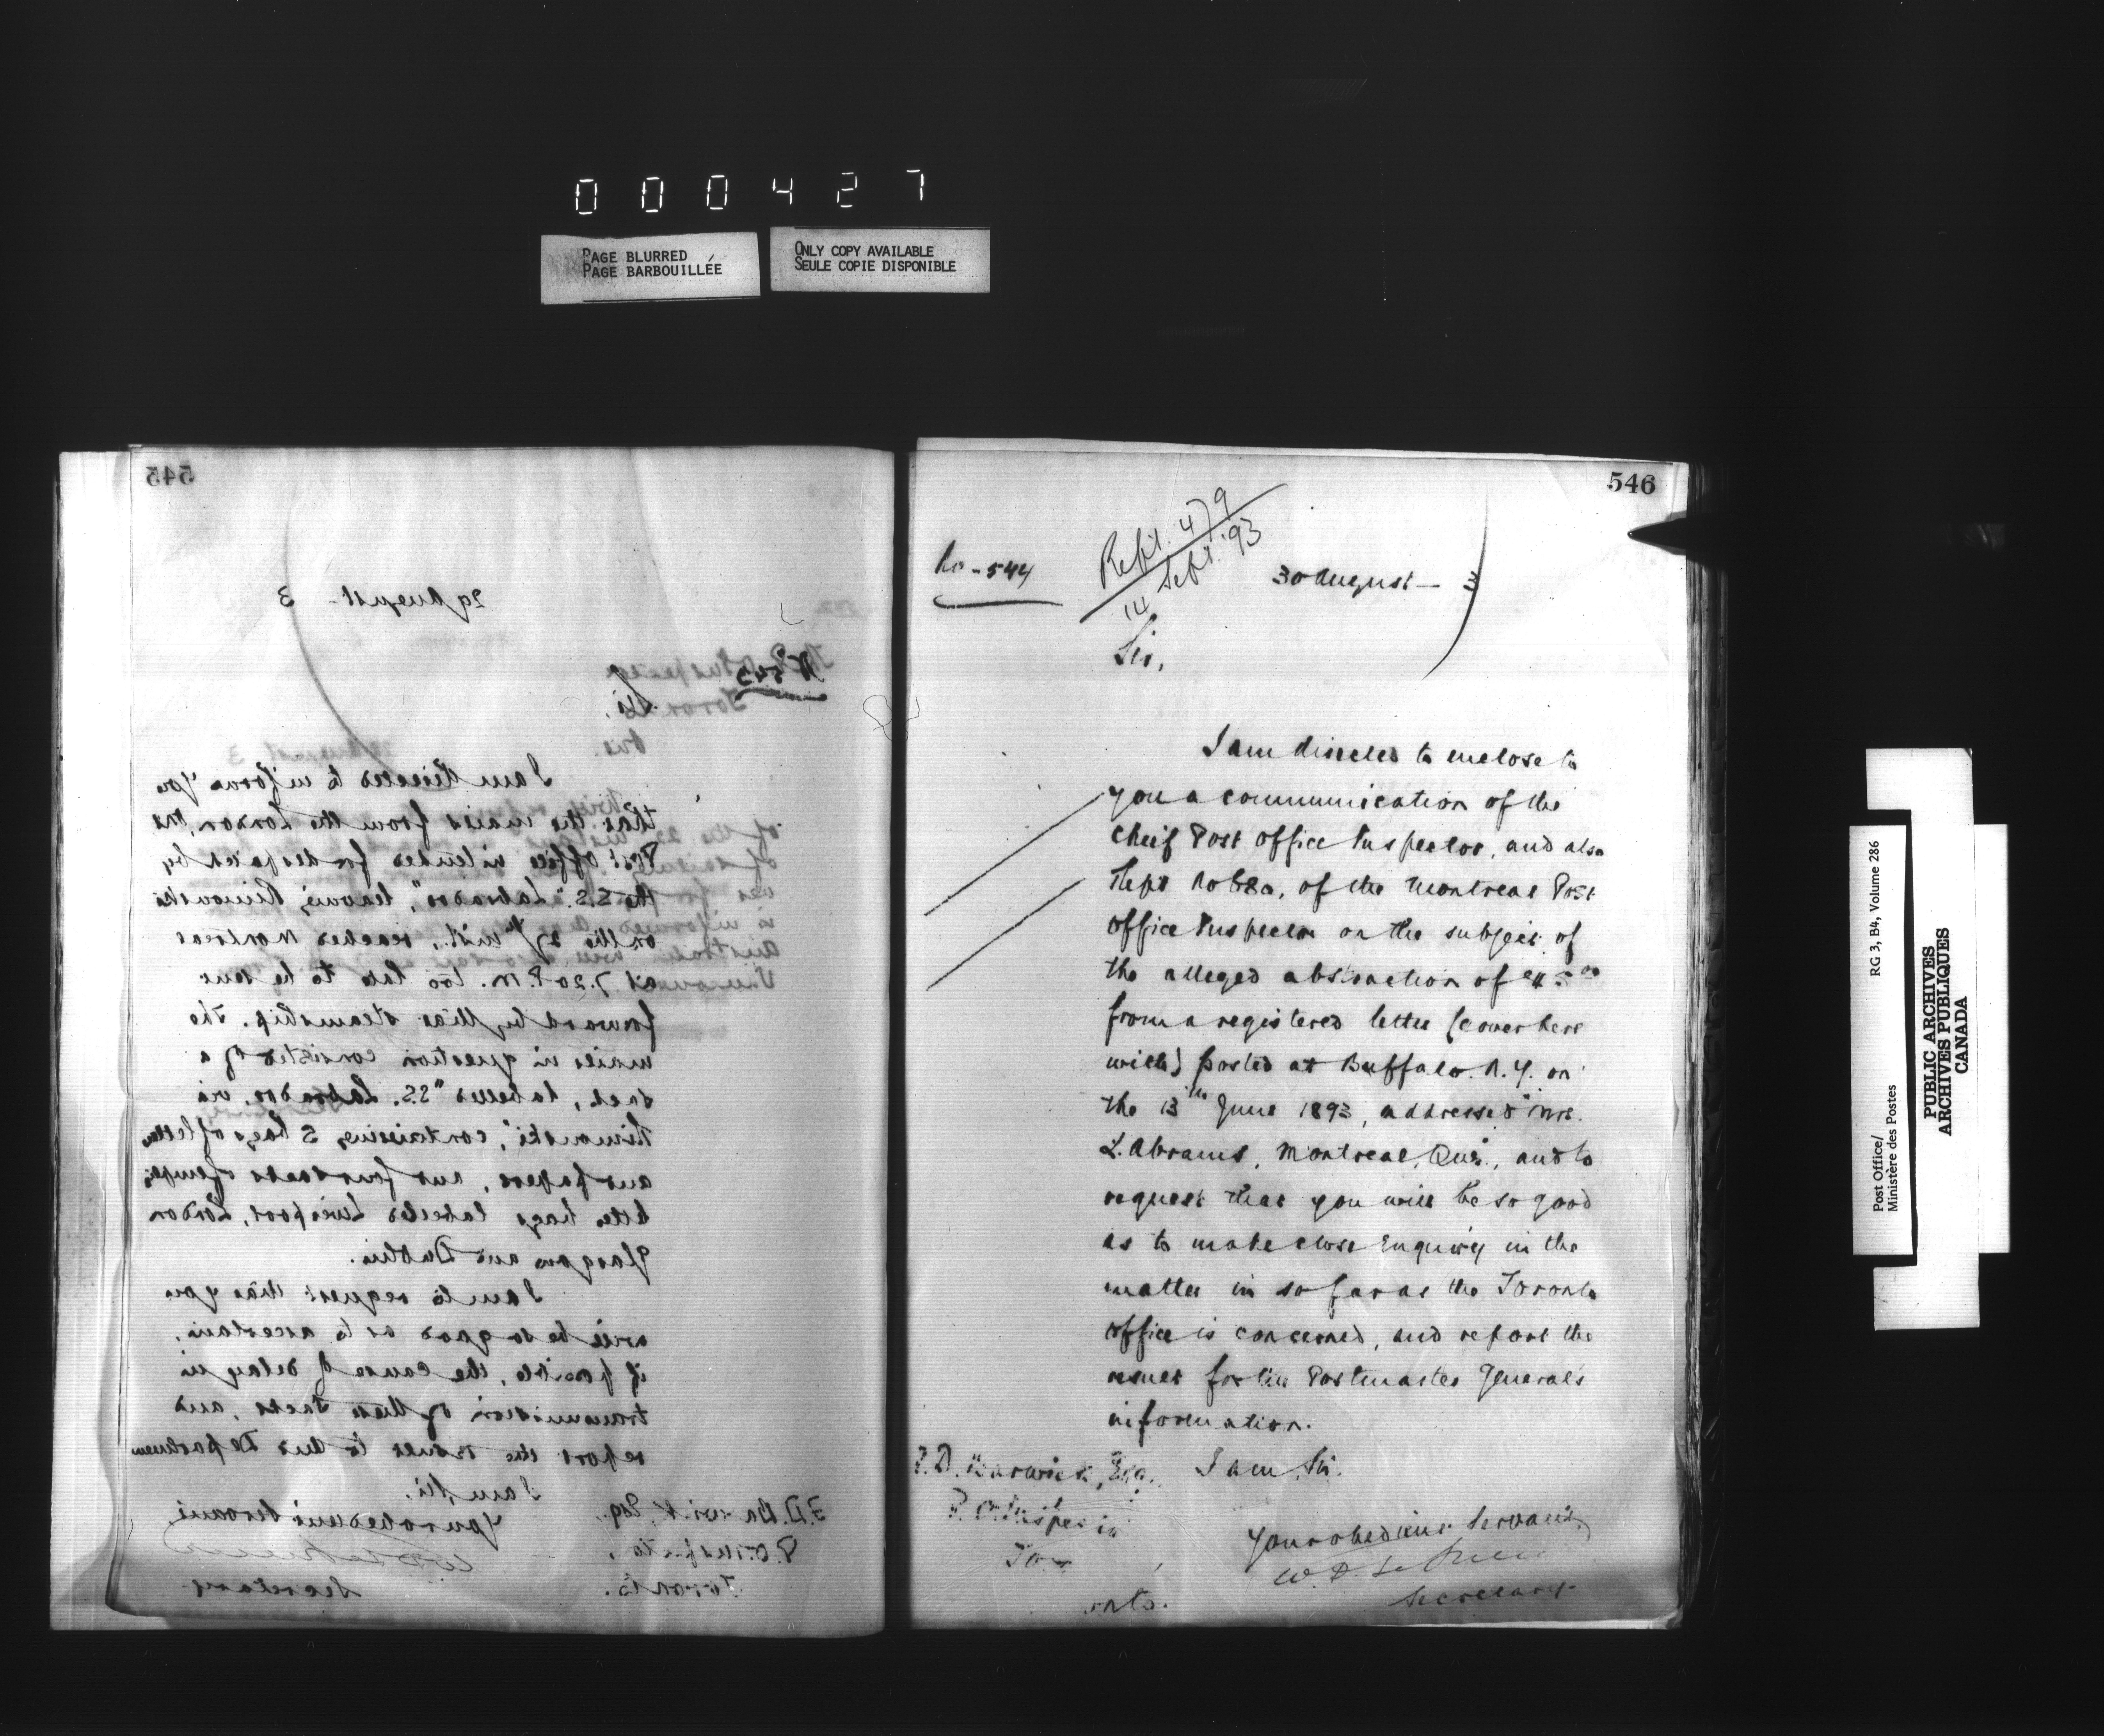 0 0 0 4 2 7
PAGE BLURRED
PAGE BARBOUILLÉE
ONLY COPY AVAILABLE
SEULE COPIE DISPONIBLE
545
29 August - 3
No 543
Sir,
I am directed to inform you
that the mails from the London, Ont.
Post Office intended for despatch by
the S.S. "Labrador", leaving Rimouski
on the 27th inst., reached Montreal
at 7.20 P.M. too late to be sent
forward by that steamship. The
mails in question consisted of a
sack, labelled "S.S. Labrador, via
Rimouski", containing 5 bags of letters
and papers, and four sacks of empty
letter bags labelled Liverpool, London
Glasgow and Dublin.
I am to request that you
will be so good as to ascertain,
if possible, the cause of delay in
transmission of these sacks, and
report the result to this Department
I am, Sir,
Your obedient Servant
Secretary
F.D. Barwick, Esq.,
P.O. Inspector,
Toronto.
546
No - 544
Rept. 479
14 Sept. '93
30 August - 3
Sir,
I am directed to enclose to
you a communication of the
Cheif Post Office Inspector, and also
Rept No of the Montreal Post
Office Inspector on the subject of
the alleged abstraction of $5.00
from a registered letter (cover here
with) posted at Buffalo. N.Y. on
the 13th June 1893, addressed "Mrs.
L. Abrams, Montreal, Que.", and to
request that you will be so good
as to make close Enquiry in the
matter in so far as the Toronto
office is concerned, and report the
result for the Postmaster General's
information.
I am, Sir.
Your obedient Servant,
W. D. LeSueur
Secretary.
F.D. Barwick, Esq.,
P.O. Inspector
Tor
onto.
Post Office/
Ministère des Postes
RG 3, B4, Volume 286
PUBLIC ARCHIVES
ARCHIVES PUBLIQUES
CANADA